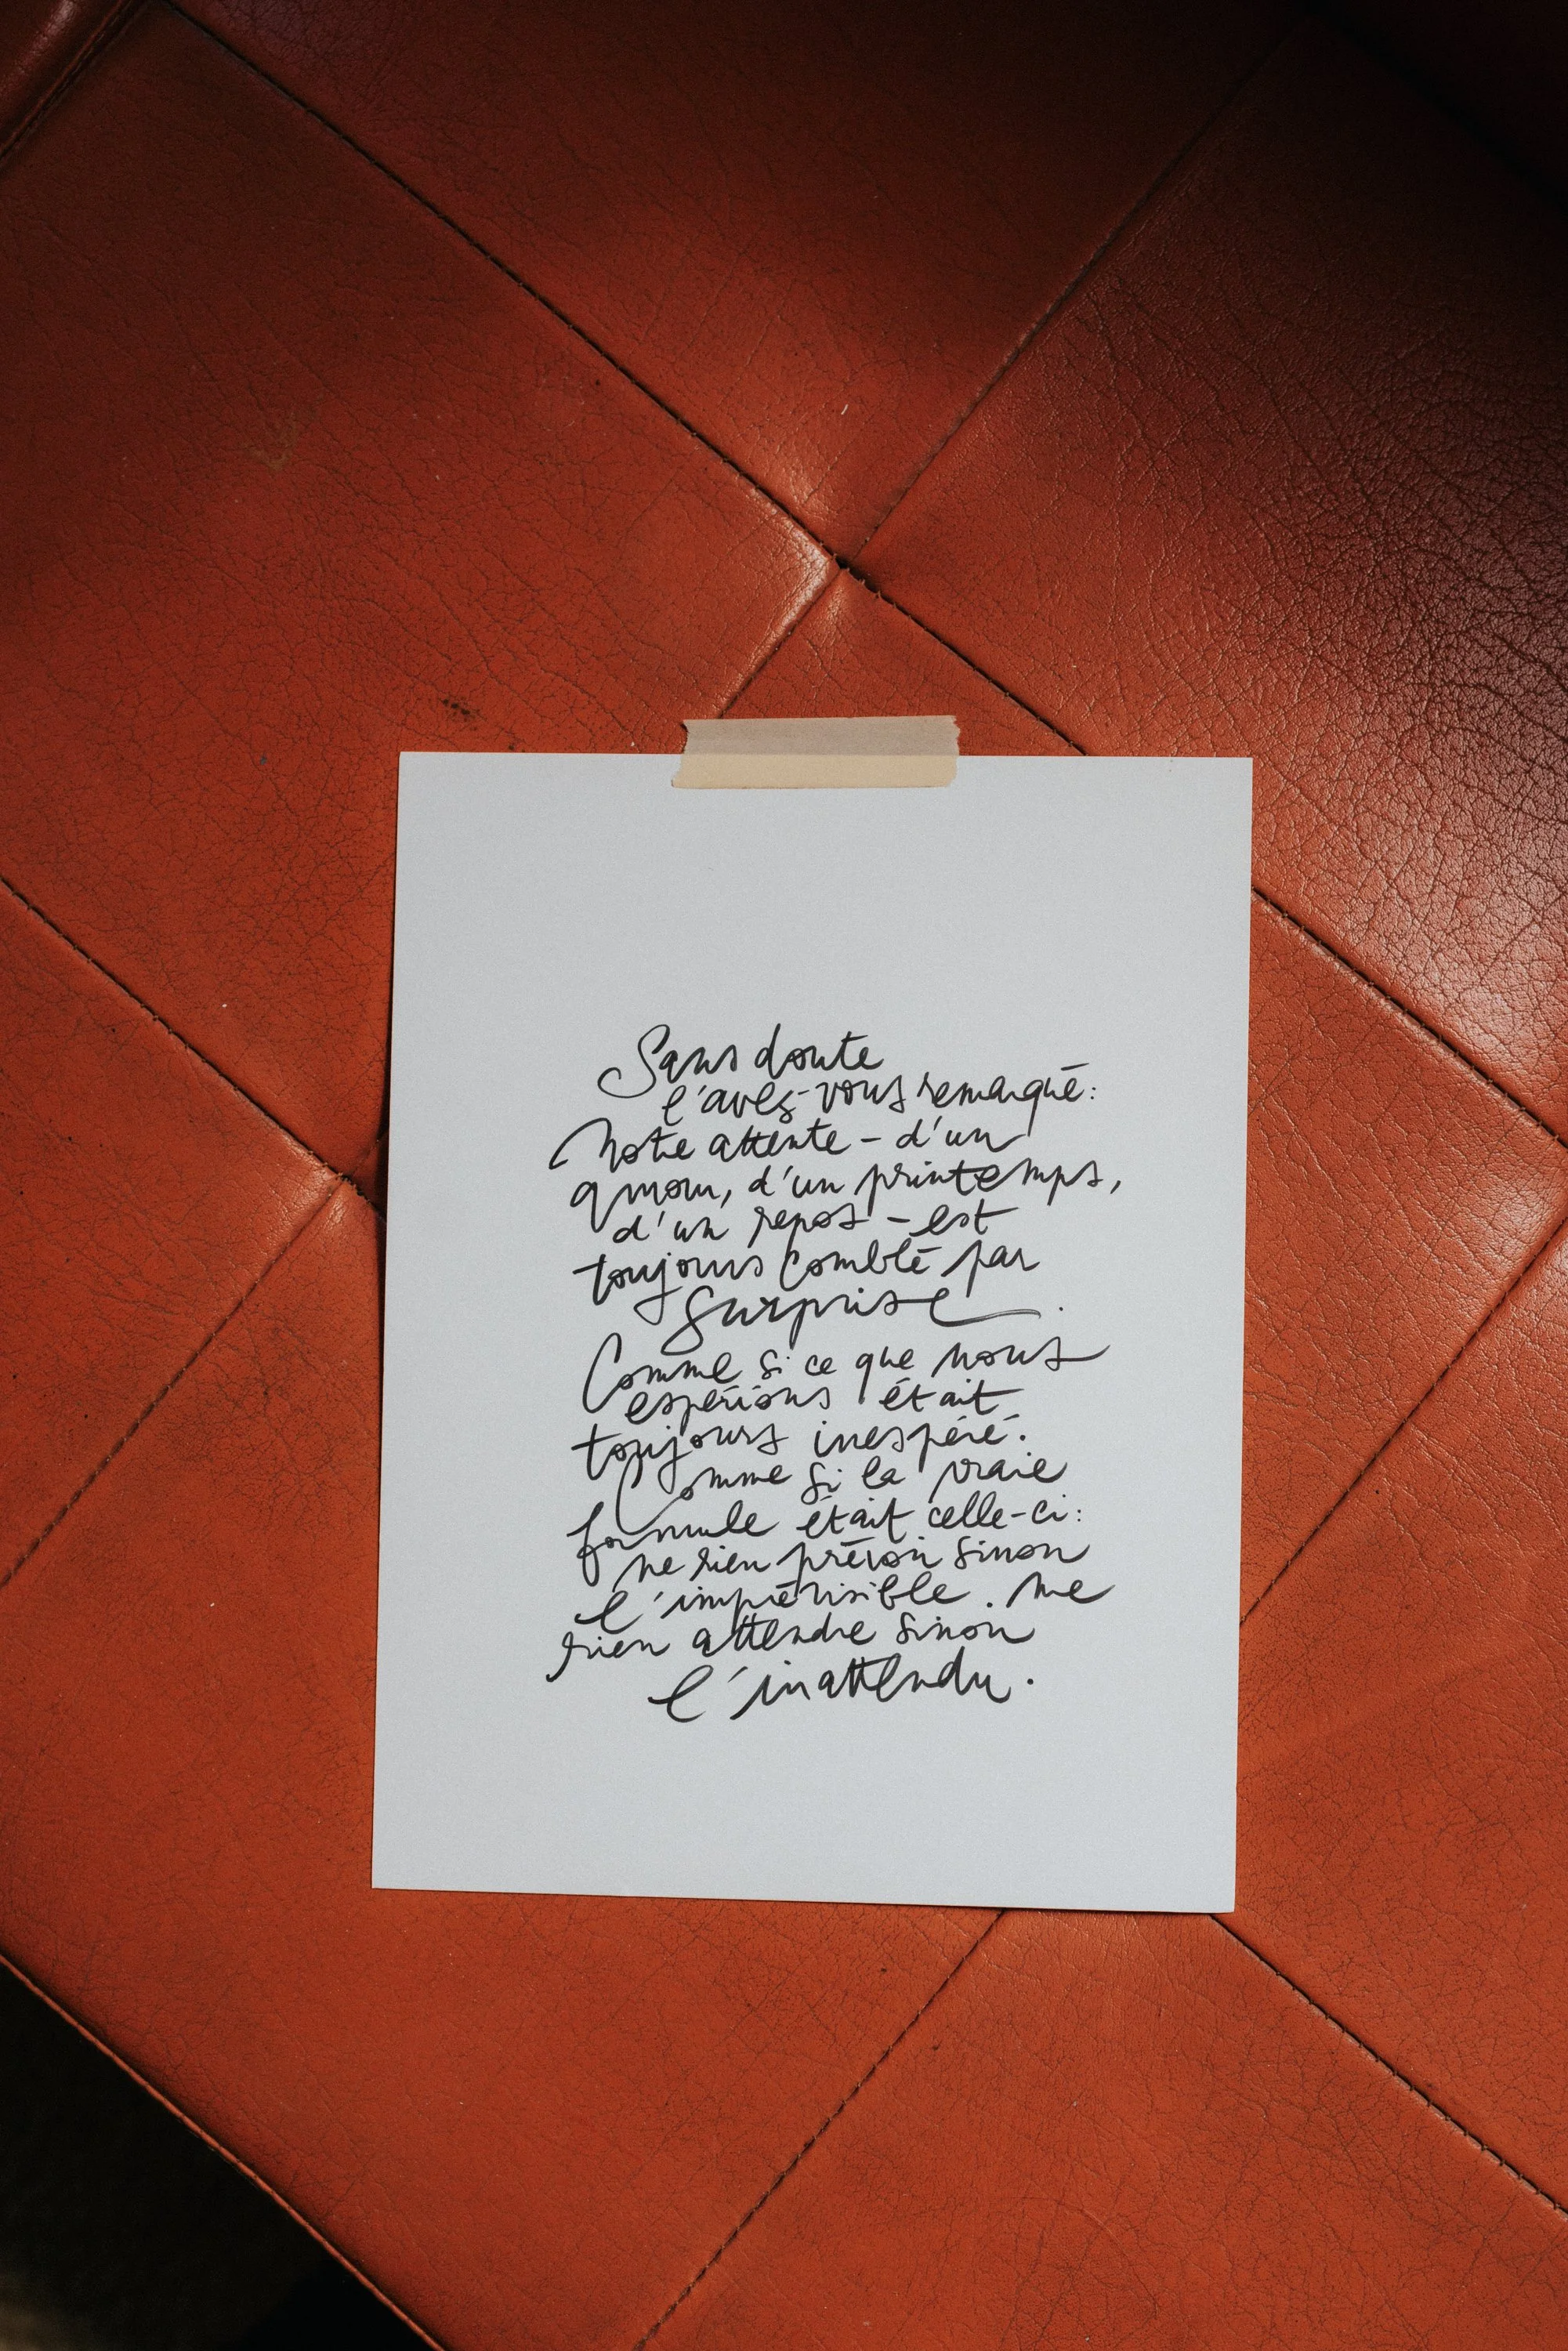 Sans doute
l'avez-vous remarqué:
Notre attente - d'un
amour, d'un printemps,
d'un repos - est
toujours comblé par
surprise.
Comme si ce que nous
espérions était
toujours inespéré.
Comme si la vraie
formule était celle-ci:
ne rien prévoir sinon
l'imprévisible. Ne
rien attendre sinon
l'inattendu.